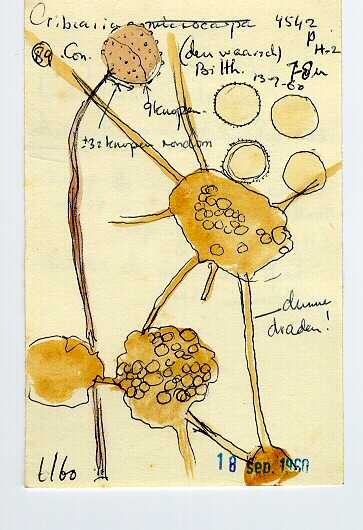 Cribraria microcarpa 4542
89 Con. (den waarsch) p H=2
Bilth. 7-8 u
13-9-60
9 knopen.
±32 knopen rondom
dunne
draden!
t/60
18 Sep. 1960